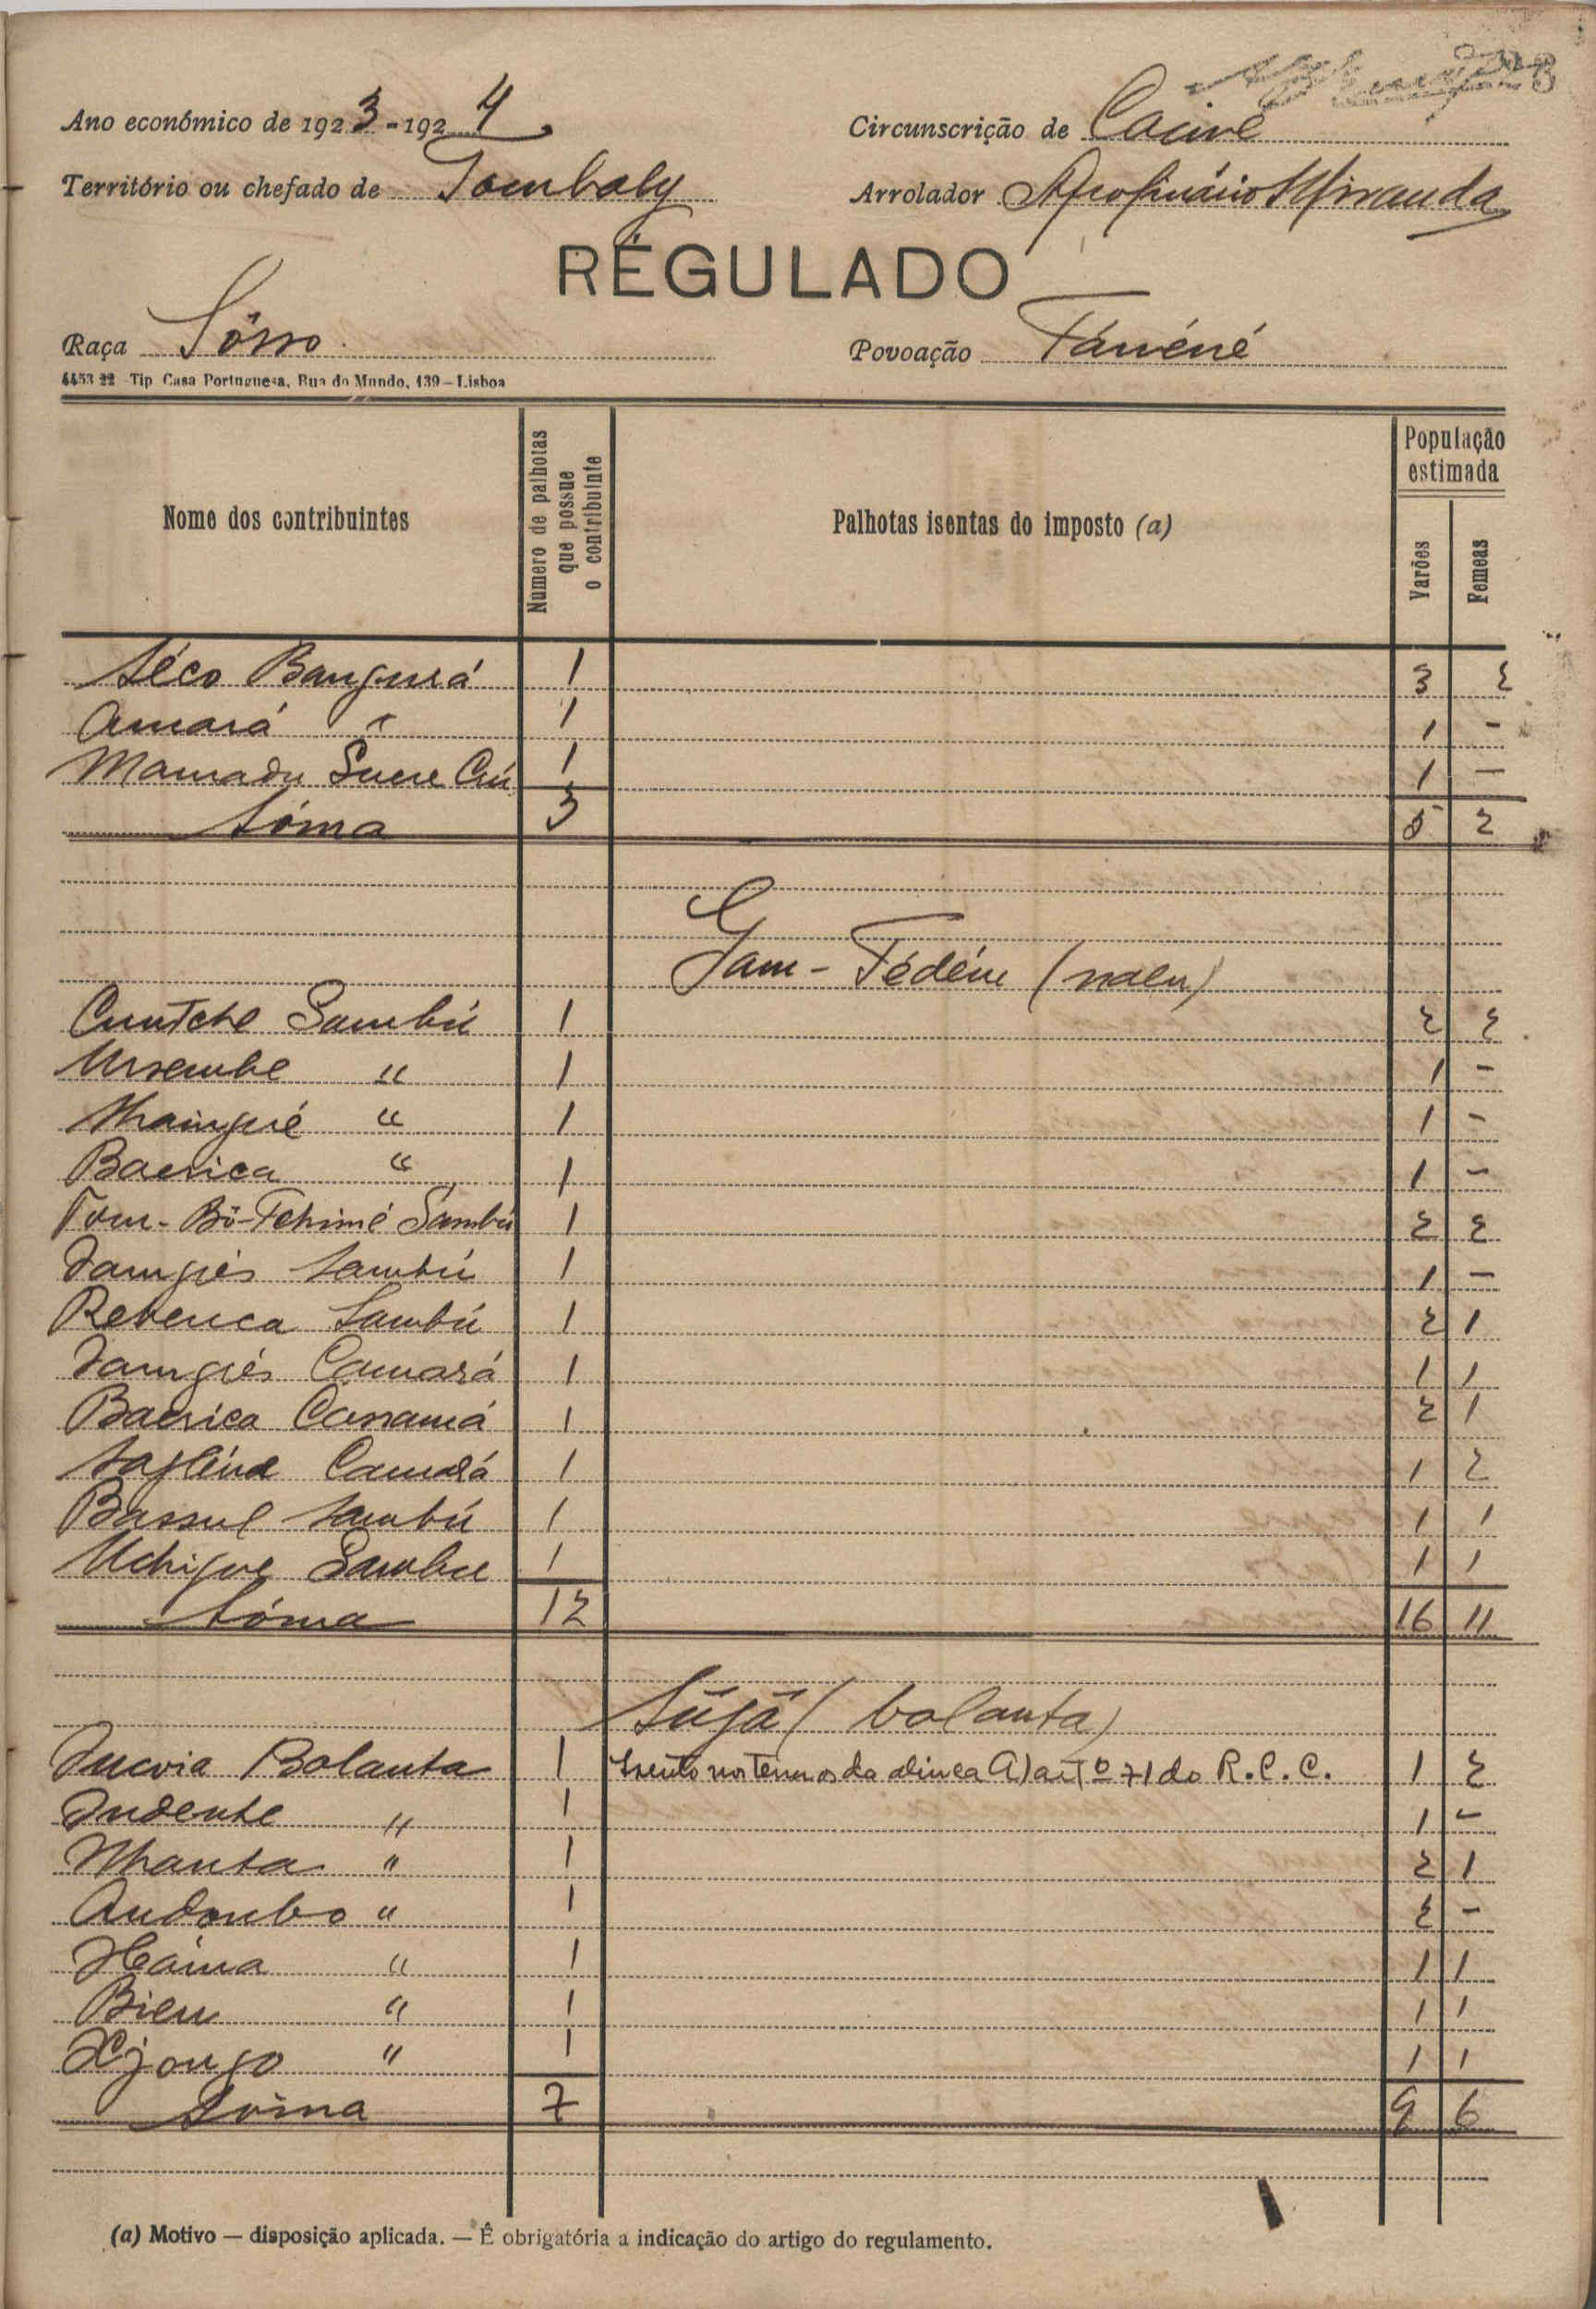 Ano económico de 1923-1924
Circunscrição de Caciné
Território ou chefado de Tombaly
Arrolador Miranda
REGULADO
Raça Sôsso
Povoação Fánéné
4453 22 - Tip Casa Portuguesa, Rua do Mundo, 139 - Lisboa
Nome dos contribuintes
Numero de palhotas que possue o contribuinte
Palhotas isentas do imposto (a)
População estimada
Varões
Femeas
Séco Bangurá 1 3 2
Amará " 1 1 -
Mamadu 1 1 -
Sôma 3 5 2
Gam-Fédéne (nalu)
Cuntche Sambú 1 2 2
Ursembe " 1 1 -
" 1 1 -
Baerica " 1 1 -
Tom-Bó-Tchimé Sambú 1 2 2
Sambú 1 1 -
Rebenca Sambú 1 2 1
Camará 1 1 1
Baerica Cassamá 1 2 1
Camará 1 1 2
Bassul Sambú 1 1 1
Sambu 1 1 1
Sôma 12 16 11
(balanta)
Balanta 1 Isento nos termos da alinea a) artº 71 do R.C.C. 1 2
Indenhe " 1 1 -
Nhanta " 1 2 1
Andombo " 1 2 -
" 1 1 1
Bien " 1 1 1
" 1 1 1
Sôma 7 9 6
(a) Motivo — disposição aplicada. — É obrigatória a indicação do artigo do regulamento.